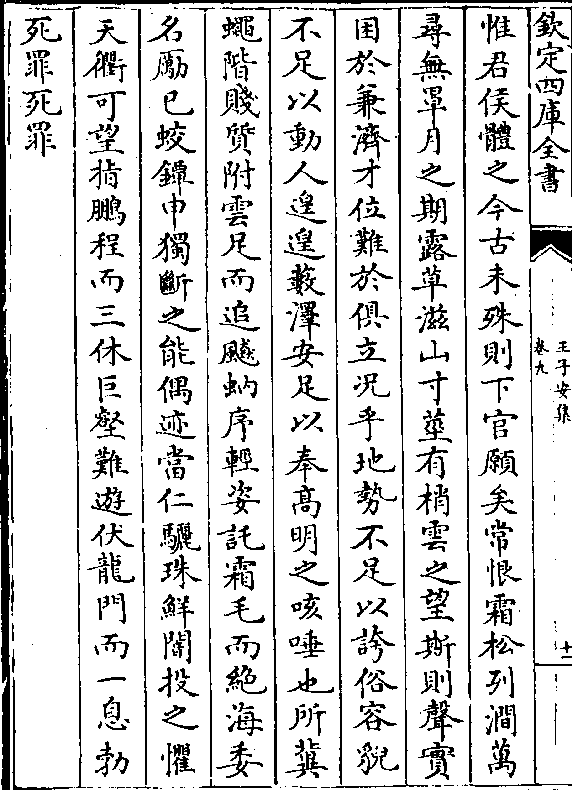 欽定四庫全書
王子安集
卷九
十二
惟君侯體之今古未殊則下官願矣常恨霜松列澗萬
尋無罩月之期露草滋山寸莖有梢雲之望斯則聲實
困於兼濟才位難於俱立况乎地勢不足以誇俗容貎
不足以動人遑遑藪澤安足以奉高明之咳唾也所冀
蠅階賤質附雲足而追飈蚋序輕姿託霜毛而絶海委
名勵已蛟鐔申獨斷之能偶迹當仁驪珠鮮闇投之懼
天衢可望指鵬程而三休巨壑難遊伏龍門而一息勃
死罪死罪